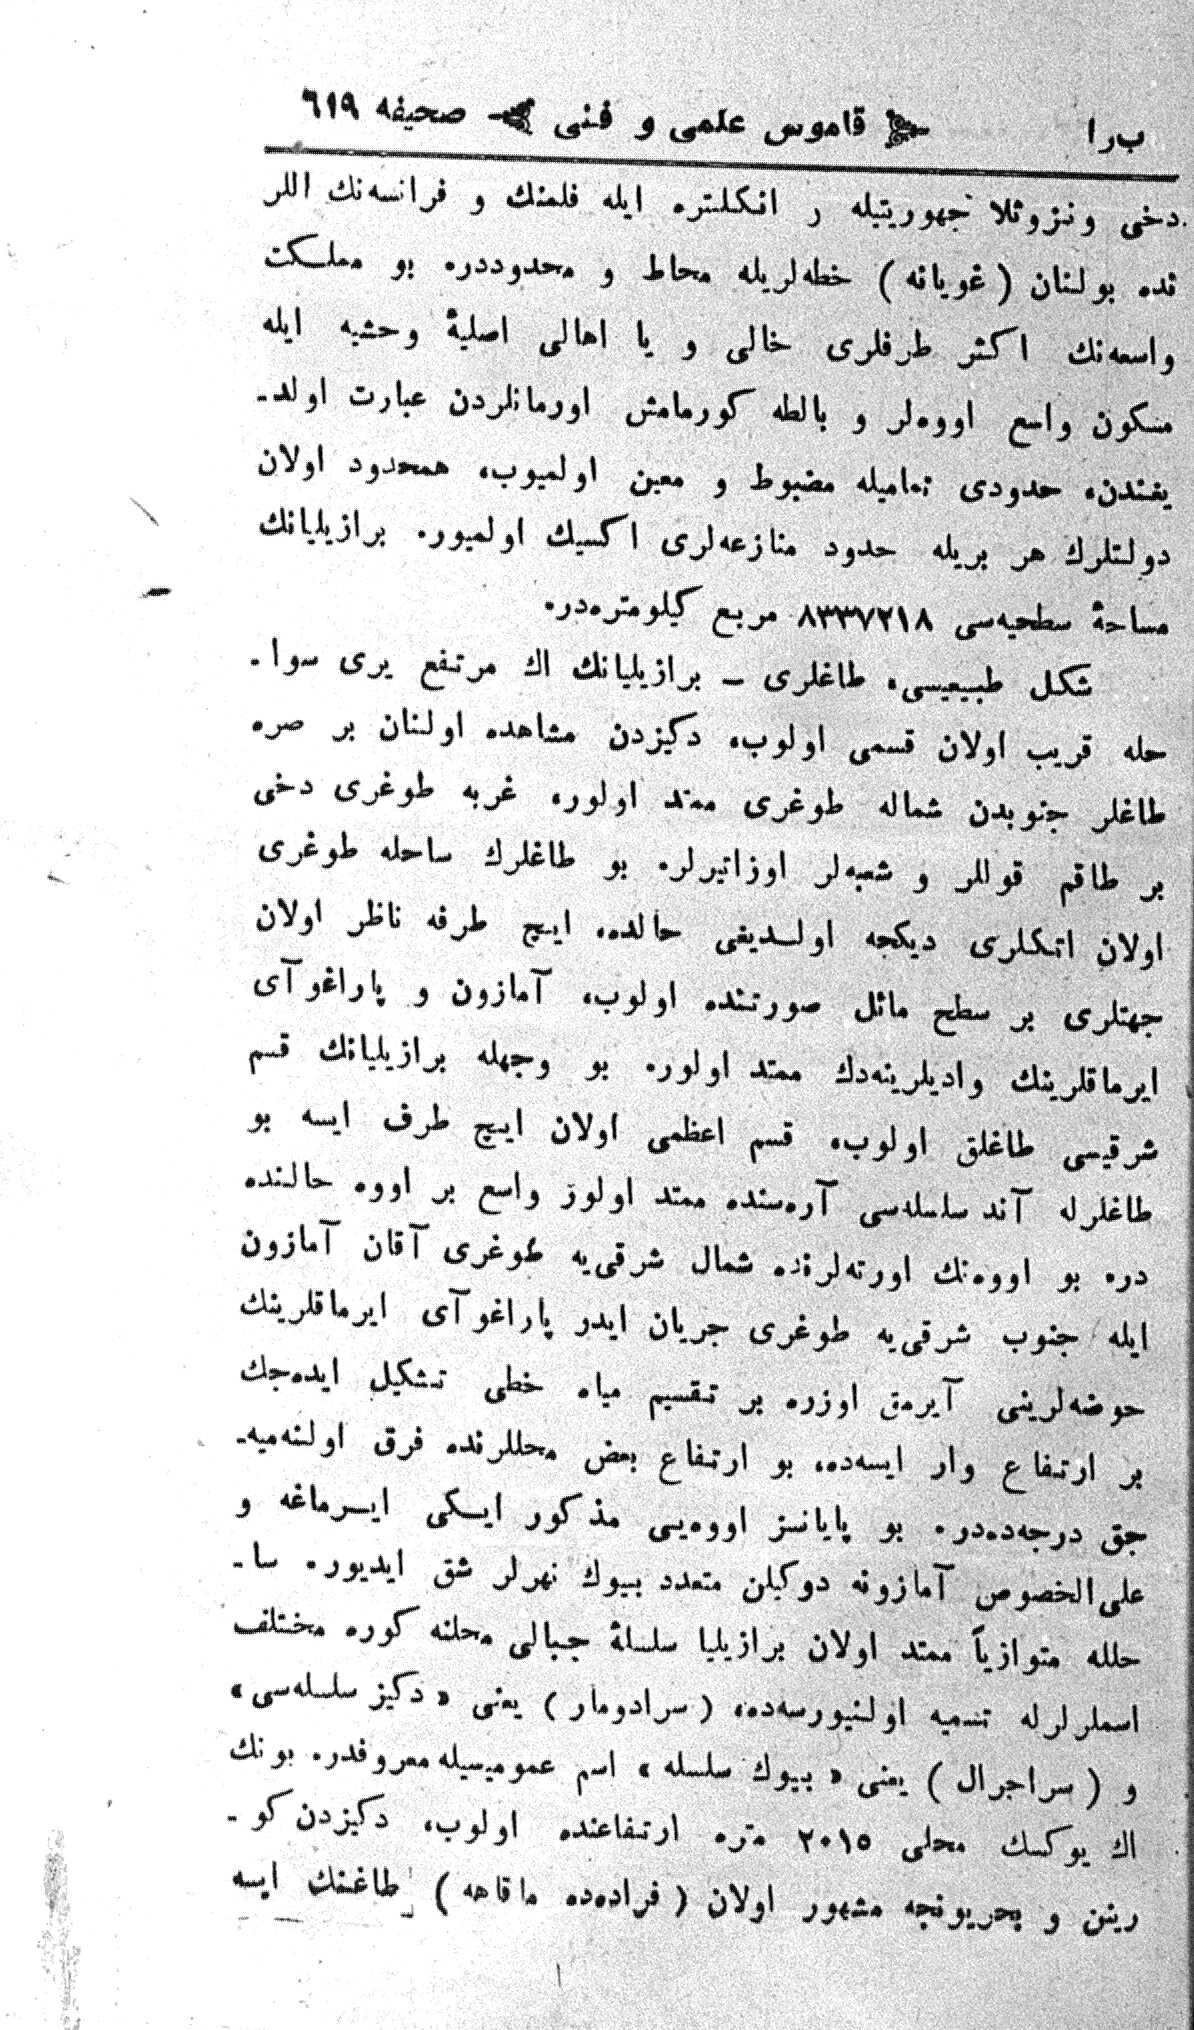 ب‌را قاموس علمی و فنی صحیفه ٦١٩
دخی ونزوئلا جهوریتیله ر انکلتره ایله فلمنك و فرانسه‌نك اللر
نده بولنان (غویانه) خطه‌لریله محاط و محدوددر. بو مملـکت
واسعه‌نك اکثر طرفلری خالی و یا اهالی اصلیهٔ وحشیه ایله
مسکون واسع اووه‌لر و بالطه کورمامش اورمانلردن عبارت اولد-
یغندن، حدودی تمامیله مضبوط و معین اولمیوب، همحدود اولان
دولتلرك هر بریله حدود منازعه‌لری اکسیك اولمیور. برازیلیانك
مساحهٔ سطحیه‌سی ٨٣٣٧٢١٨ مربع کیلومتره‌در.
شکل طبیعیسی، طاغلری ــ برازیلیانك اك مرتفع یری سوا-
حله قریب اولان قسمی اولوب، دکیزدن مشاهده اولنان بر صره
طاغلر جنوبدن شماله طوغری ممتد اولور، غربه طوغری دخی
بر طاقم قوللر و شعبه‌لر اوزاتیرلر. بو طاغلرك ساحله طوغری
اولان اتکلری دیکجه اولـدیغی حالده، ایچ طرفه ناظر اولان
جهتلری بر سطح مائل صورتنده اولوب، آمازون و پاراغوآی
ایرماقلرینك وادیلرینه‌دك ممتد اولور. بو وجهله برازیلیانك قسم
شرقیسی طاغلق اولوب، قسم اعظمی اولان ایچ طرف ایسه بو
طاغلرله آند سلسله‌سی آره‌سنده ممتد اولوز واسع بر اووه حالنده
در، بو اووه‌نك اورته‌لرنده شمال شرقی‌یه طوغری آقان آمازون
ایله جنوب شرقی‌یه طوغری جریان ایدر پاراغوآی ایرماقلرینك
حوضه‌لرینی آیرمق اوزره بر تـقسیم میاه خطی تـشکیل ایده‌جك
بر ارتـفاع وار ایسه‌ده، بو ارتـفاع بعض محللرنده فرق اولنه‌میه-
جق درجه‌ده‌در. بو پایانسز اووه‌یی مذکور ایـکی ایـرماغه و
علی‌الخصوص آمازونه دوکیلن متعدد بیوك نهرلر شق ایدیور. سا-
حلله متوازیاً ممتد اولان برازیلیا سلسلهٔ جبالی محلنه کوره مختلف
اسملرلرله تسمیه اولنیورسه‌ده، (سرادومار) یعنی «دکیز سلسله‌سی»
و (سراجرال) یعنی «بیوك سلسله» اسم عمومیسیله معروفدر. بونك
اك یوکسك محلی ٢٠١٥ متره ارتـفاعنده اولوب، دکیزدن کو-
رینن و بحریونجه مشهور اولان (فراده‌ده ماقاهه) طاغنك ایسه